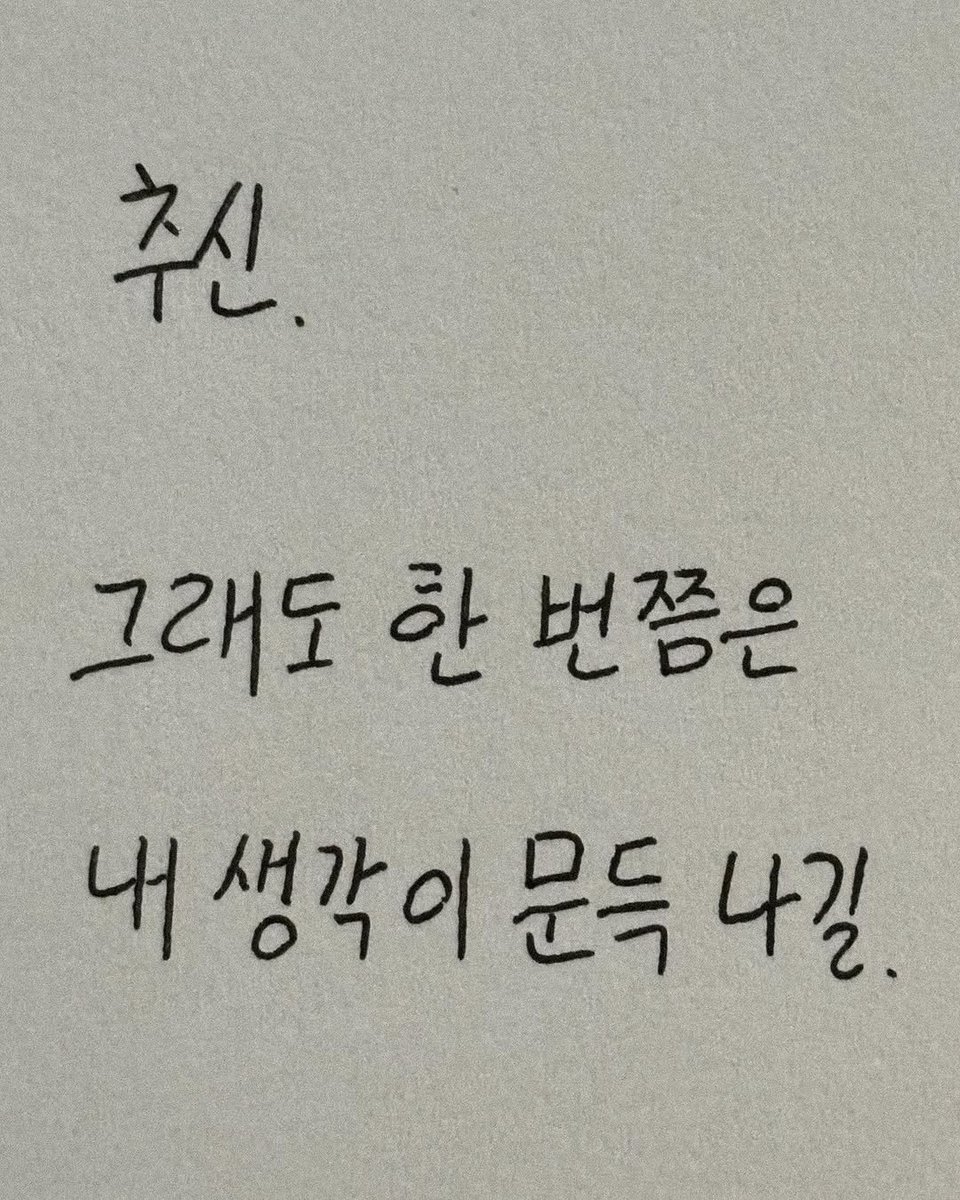 추신.
그래도 한 번쯤은
내 생각이 문득 나길.